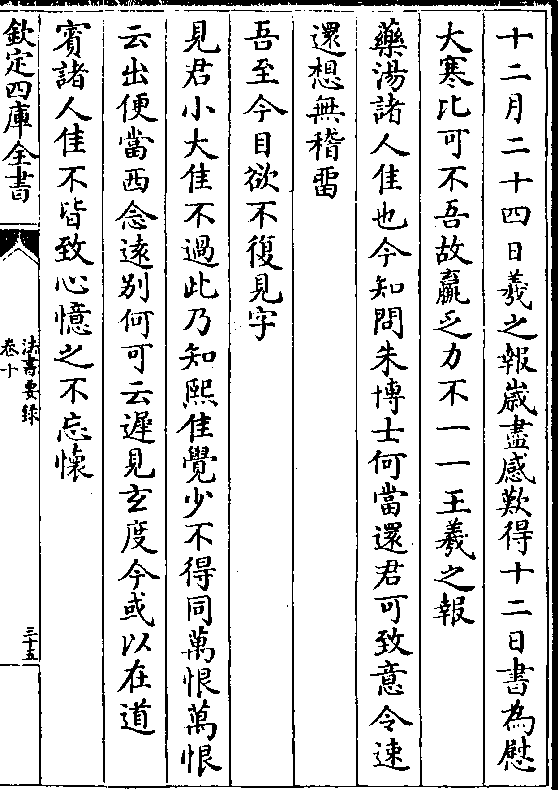 十二月二十四日羲之報歲盡感歎得十二日書為慰
大寒比可不吾故羸乏力不一一王羲之報
藥湯諸人佳也今知問朱博士何當還君可致意令速
還想無稽留
吾至今目欲不復見字
見君小大佳不過此乃知熙佳覺少不得同萬恨萬恨
云出便當西念遠别何可云遲見玄度今或以在道
賓諸人佳不皆致心憶之不忘懷
欽定四庫全書
法書要録
卷十
三十五